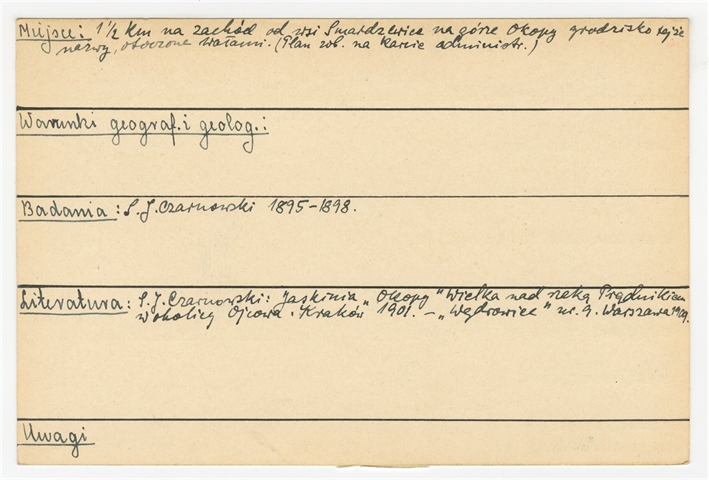 Miejsce: 1 1/2 Km na zachód od wsi Smardzewice na górze Okopy grodzisko tejże
nazwy, otoczone wałami. (Plan zob. na karcie administr.)
Warunki geograf. i geolog.:
Badania: S. J. Czarnowski 1895-1898.
Literatura: S. J. Czarnowski: Jaskinia „Okopy" Wielka nad rzeką Prądnikiem
w okolicy Ojcowa. Kraków 1901. – „Wędrowiec" nr. 9. Warszawa
Uwagi